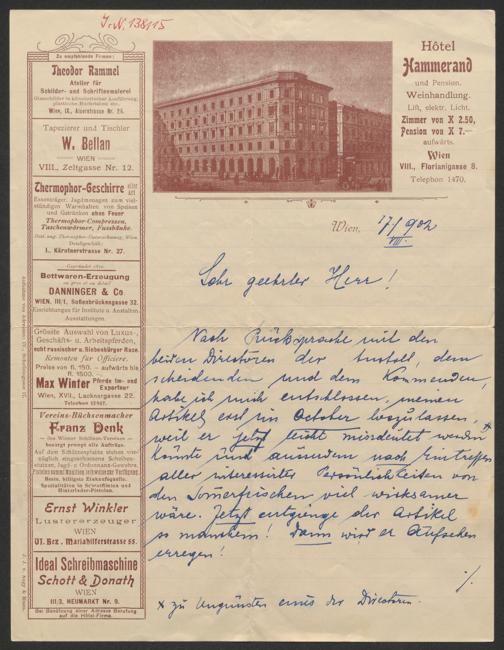 J.N. 138115
Zu empfehlende Firmen:
Theodor Rammel
Atelier für
Schilder- und Schriftenmalerei
Wien, IX., Alserstrasse Nr. 24.
Tapezierer und Tischler
W. Bellan
WIEN
VIII., Zeltgasse Nr. 12.
Thermophor-Geschirre
Essenträger, Jagdmenagen zum viel-
stündigen Warmhalten von Speisen
und Getränken ohne Feuer
Thermophor-Compressen,
Taschenwärmer, Fussbänke.
I., Kärntnerstrasse Nr. 27.
Gegründet 1810.
Bettwaren-Erzeugung
en gros et en détail
DANNINGER & Co
WIEN, III/1, Seßenbrückengasse 32.
Einrichtungen für Institute u. Anstalten.
Ausstattungen.
Grösste Auswahl von Luxus-,
Geschäfts- u. Arbeitspferden,
echt russischer u. Siebenbürger Race.
Remonten für Officiere.
Preise von fl. 150.— aufwärts bis
fl. 1500.—
Max Winter Pferde Im- und
Exporteur
Wien, XVII., Lacknergasse 22.
Telephon 12167.
Vereins-Büchsenmacher
Franz Denk
des Wiener Schützen-Vereines
besorgt prompt alle Aufträge.
Auf dem Schützenplatze stehen vor-
züglich eingeschossene Scheiben-
stutzen, Jagd- u. Ordonnanz-Gewehre.
Beste, billigste Einkaufsquelle.
Spezialitäten in Scrotbüchsen und
Hinterlader-Pistolen.
Ernst Winkler
Lustererzeuger
WIEN
VI. Bez. Mariahilferstrasse 55.
Ideal Schreibmaschine
Schott & Donath
WIEN
III/3, HEUMARKT Nr. 9.
Bei Benützung einer Adresse Berufung
auf die Hôtel-Firma.
Hôtel
Hammerand
und Pension.
Weinhandlung.
Lift, elektr. Licht.
Zimmer von K 2.50,
Pension von K 7.—
aufwärts.
Wien
VIII., Florianigasse 8.
Telephon 1470.
Wien, 17/VIII. 902
Sehr geehrter Herr!
Nach Rücksprache mit den
beiden Directoren der Anstalt, dem
scheidenden und dem Kommenden,
habe ich mich entschlossen, meinen
Artikel erst im October loszulassen,
weil er jetzt leicht missdeutet werden x
könnte und ausserdem nach Eintreffen
aller interessirter Persönlichkeiten von
den Sommerfrischen viel wirksamer
wäre. Jetzt entgienge der Artikel
so manchem! Dann wird er Aufsehen
erregen!
./.
x zu Ungunsten eines der Directoren.